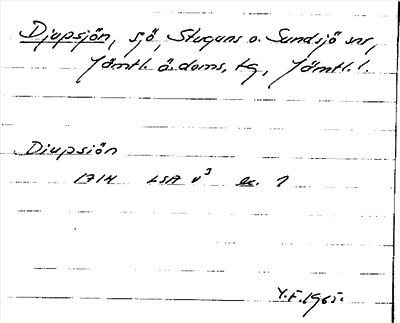 Djupsjön, sjö, Stuguns o. Sundsjö snr,
Jämtl. ö. doms. tg, Jämtl. l.
Diupsiön
1714 LSA v³ ae. 7
Y.F. 1965.